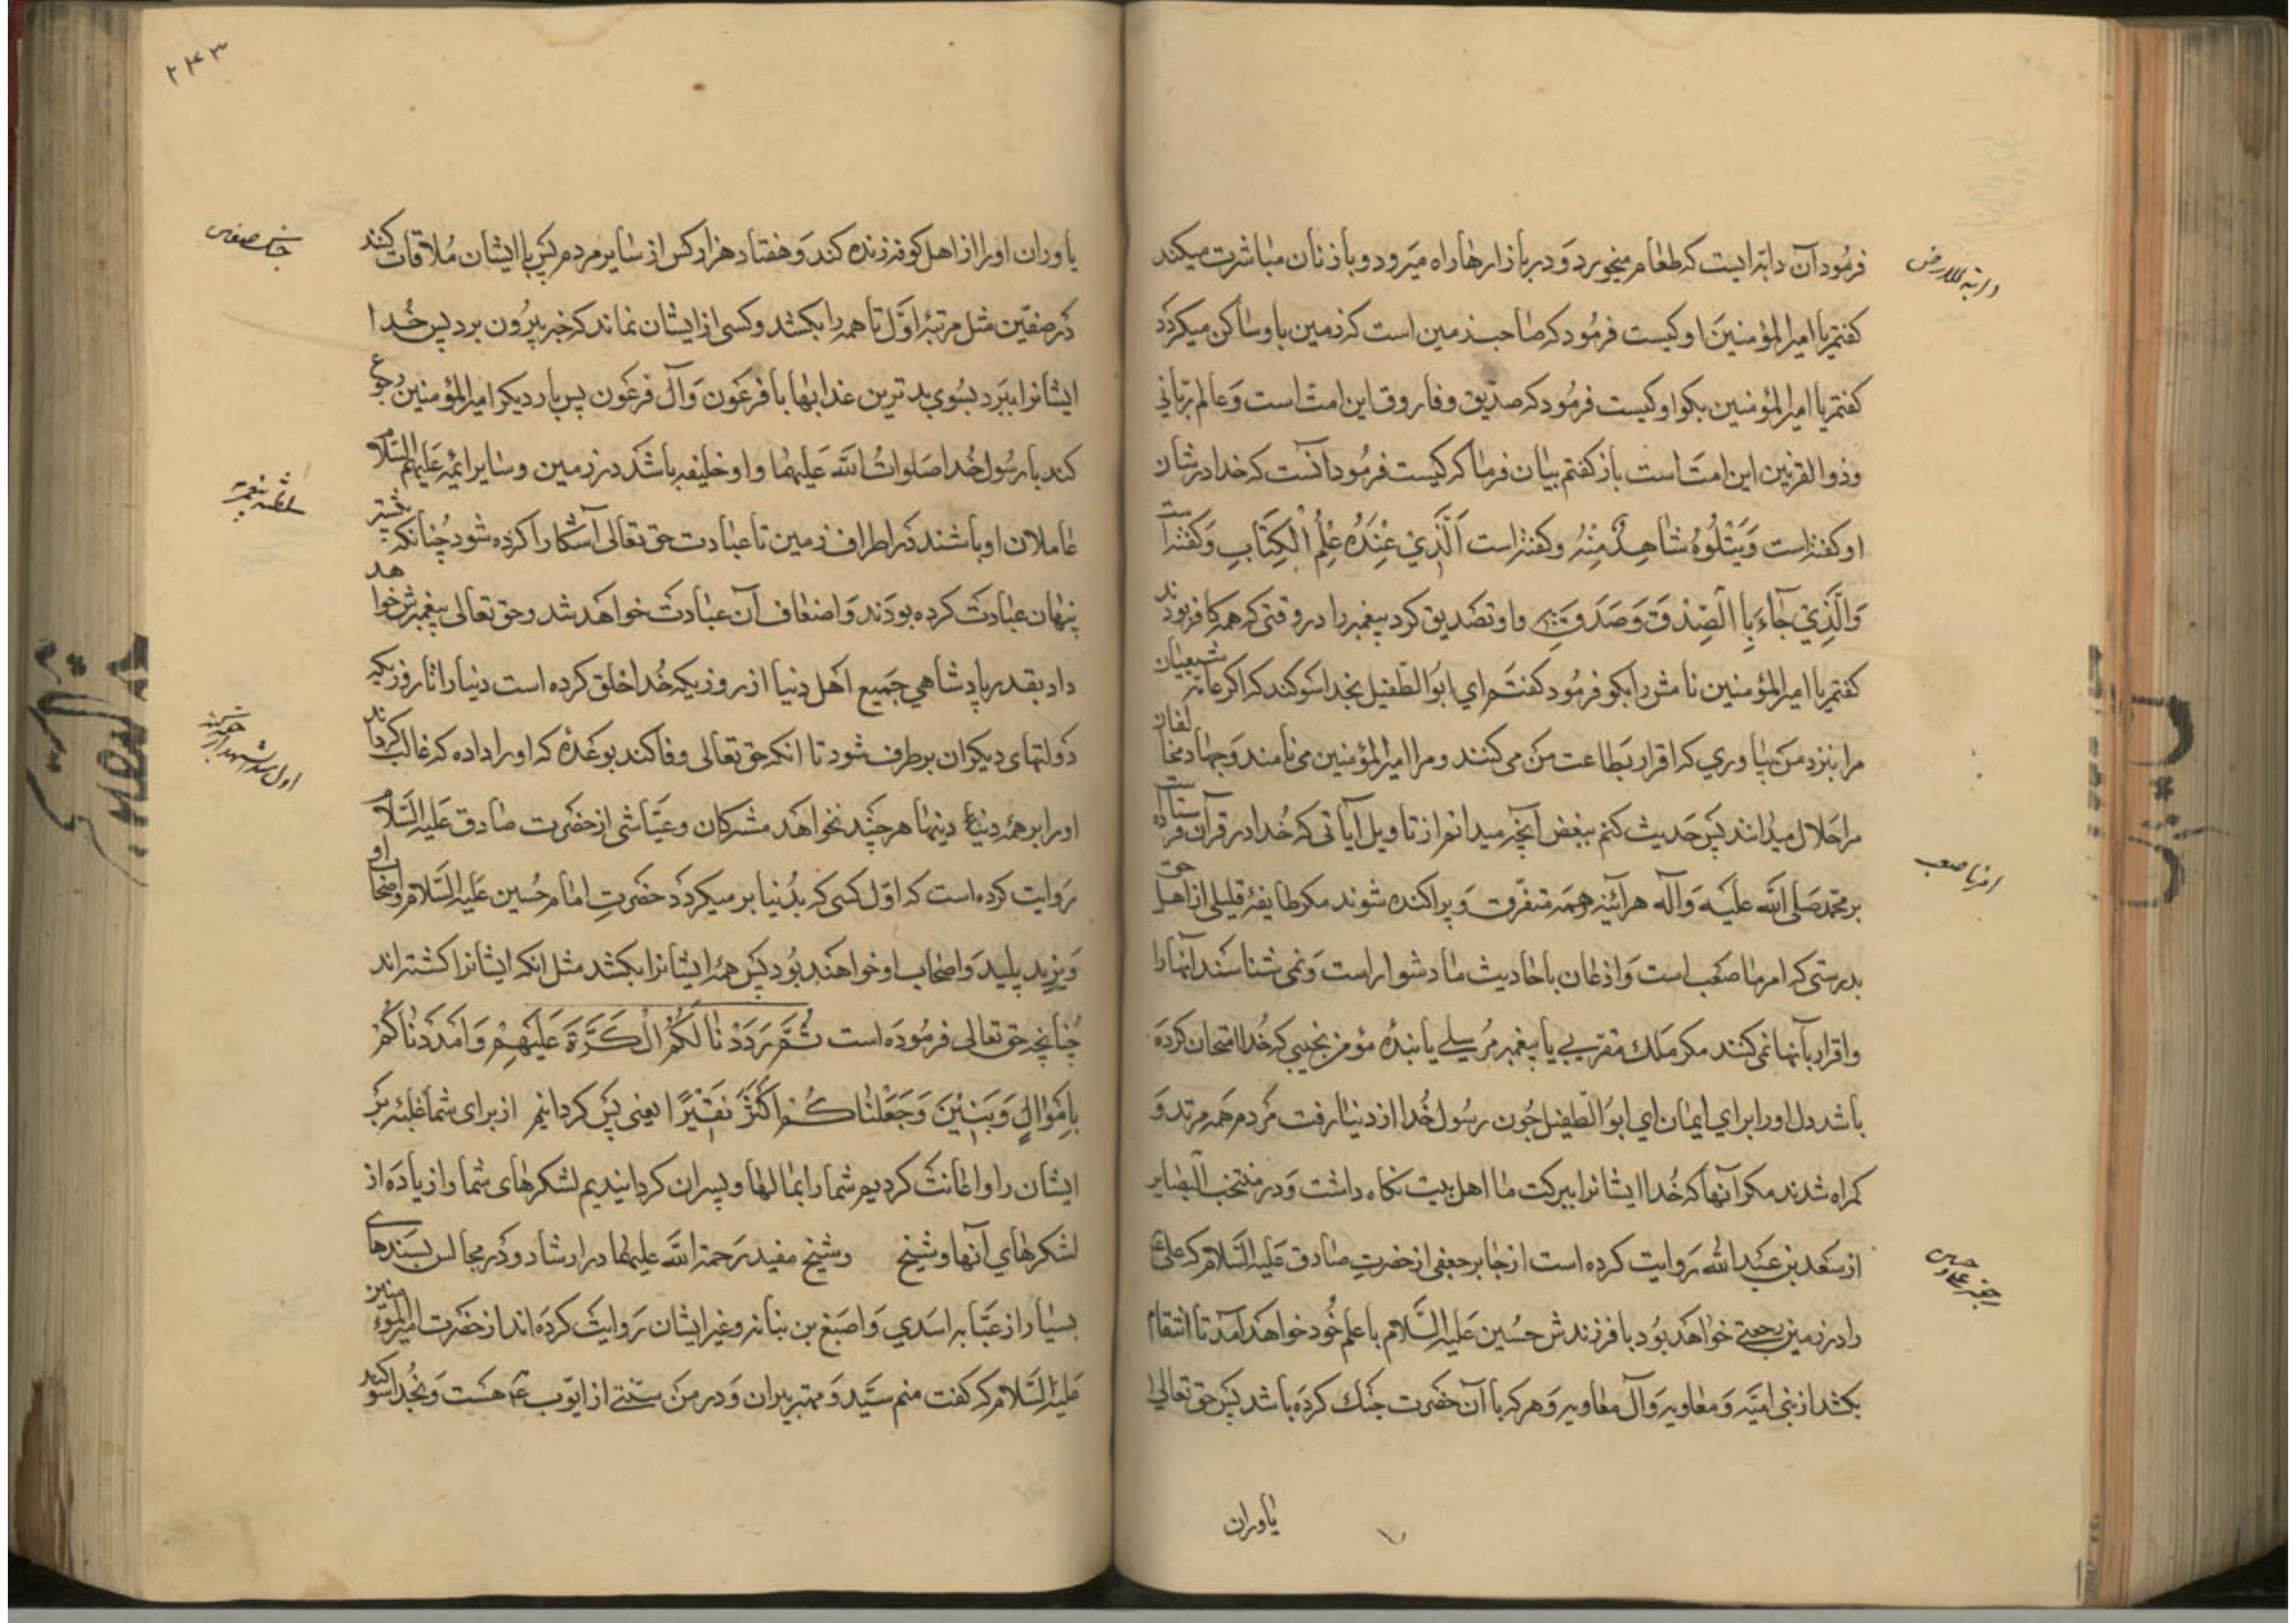 فرمُود آن دابّه ایست که طعام میخورد وَ در بازارها راه میَرود و با زنان مباشرت میکند
دابة الارض
کفتم یا امیرالمؤمنینَ او کیست فرمُود که صاحب زمین است که زمین باو ساکن میکردد
کفتم یا امیرالمؤمنین بکو او کیست فرمُود که صدّیق و فاروق این امت است وَ عالم ربّانی
و ذوالقرنین این امتَ است باز کفتم بیان فرما که کیست فرمُود آنست که خدا در شان
او کفته است وَیَتْلُوهُ شَاهِدٌ مِنْهُ و کفته است اَلَّذِیْ عِنْدَهُ عِلْمُ الْکِتَابِ وَ کفته است
وَالَّذِیْ جَآءَ بِالصِّدْقِ وَصَدَّقَ بِهِ و او تصَدیق کرد پیغمبر را در وقتی که همه کافر بودند
کفتم یا امیرالمؤمنین نامش را بکو فرمُود کفتَم ای ابوُالطّفیل بخدا سَوکند که اکر عامّه شیعیان
مرا بنزد من بیاوری که اقرار بَطاعت من می کنند و مرا امیرالمؤمنین می نامند وَ جهاد مخالفان
مرا حَلال میدانند پسَ حَدیث کنم ببعض آنچه میدانم از تاویل آیاتی که خُدا در قرآن فرستاده است
بر محمّد صَلی الله علَیه وَآله هرآئینه همَه متفرّق وَ پراکنده شوند مکر طایفهٔ قلیلی از اهل حق
امر ما صعب
بدرستی که امر ما صَعب است وَ اذعان باحادیث ما دشوار است وَ نمی شناسَند آنها را
و اقرار بآنها نمی کنند مکر مَلک مقربی یا پیغمبر مُرسلی یا بندهٔ مؤمن نجیبی که خُدا امتحان کردَه
باشد دل او را برای ایمان ای ابوُالطّفیل چُون رسُول خُدا از دنیا رفت مَردم هَمه مرتد وَ
کمراه شدند مکر آنها که خُدا ایشانرا ببرکت ما اهل بیت نکاه داشت وَ در منتخب البصایر
از سَعد بن عَبد الله رَوایت کرده است از جابر جعفی از حضرتِ صادق عَلیه السَّلام که علی ع
رجعت علی و حسین
را در زمین رجعتی خواهَد بوُد با فرزندش حُسین عَلیه السَّلام با علم خُود خواهَد آمَد تا انتقام
بکشد از بنی امیَّه وَ معاویه وَ آل معاویه وَ هر که با آن حضَرت جنک کردَه باشد پسَ حق تعالی
یاوران
۲۴۳
یاوران او را از اهل کوفه زنده کند وَ هفتاد هزار کس از سایر مردم پسَ با ایشان مُلاقات کنند
جنک صفین
دَر صفّین مثل مرتبهٔ اوَّل تا همه را بکشند و کسی از ایشان نماند که خبر بیرُون برد پس خُدا
ایشانرا ببَرد بسُوی بدترین عذابها با فرعَون وَ آل فرعَون پس بار دیکر امیرالمؤمنین رجوع
کند با رسُول خُدا صَلواتُ الله عَلیهما و او خلیفه باشَد در زمین و سایر ائمّه عَلیهم السّلام
عاملان او باشند دَر اطراف زمین تا عبادت حق تعالی آشکارا کرده شود چُنانکه پیشتر
پنهان عبادَت کرده بودَند وَ اضعاف آن عبادَت خواهَد شد و حق تعالی پیغمبرش خواهد
داد بقدر پادشاهی جَمیع اهَل دنیا از روزیکه خُدا خلق کرده است دنیا را تا روزیکه
دَولتهای دیکران بر طرف شود تا آنکه حق تعالی وفا کند بوعَدهٔ که او را داده که غالب کرداند
او را بر همهٔ دینها هر چنَد نخواهَد مشرکان و عیّاشی از حضَرت صادق عَلیه السَّلام
رَوایت کرده است که اوّل کسی که بدُنیا بر میکردَد حضَرتِ امام حُسین عَلیه السَّلام و اصحاب او
وَ یزید پلید وَ اصحاب او خواهَند بوُد پسَ همهٔ ایشانرا بکشد مثل آنکه ایشانرا کشته اند
چُنانچه حق تعالی فرمُودَه است ثُمَّ رَدَدْنَا لَکُمُ الْکَرَّةَ عَلَیْهِمْ وَاَمْدَدْنَاکُمْ
بِاَمْوَالٍ وَبَنِیْنَ وَجَعَلْنَاکُمْ اَکْثَرَ نَفِیْرًا یعنی پسَ کردانیم از برای شما غلبَه بَر
ایشان را و اعانتَ کردیم شما را بمالها و پسران کردانیدیم لشکرهای شما را زیادَه از
لشکرهای آنها و شیخ و شیخ مفید رَحمة الله علیهما در ارشاد و دَر مجالس بسَندهای
بسیار از عبَایه اسَدی وَ اصبَغ بن نباته و غیر ایشان رَوایت کردَه اند از حضَرت امیرالمؤمنین
عَلیه السَّلام که کفت منم سیَّد وَ مهتر پیران وَ در من سنّتی از ایّوب ع هَست وَ بخُدا سَوکند